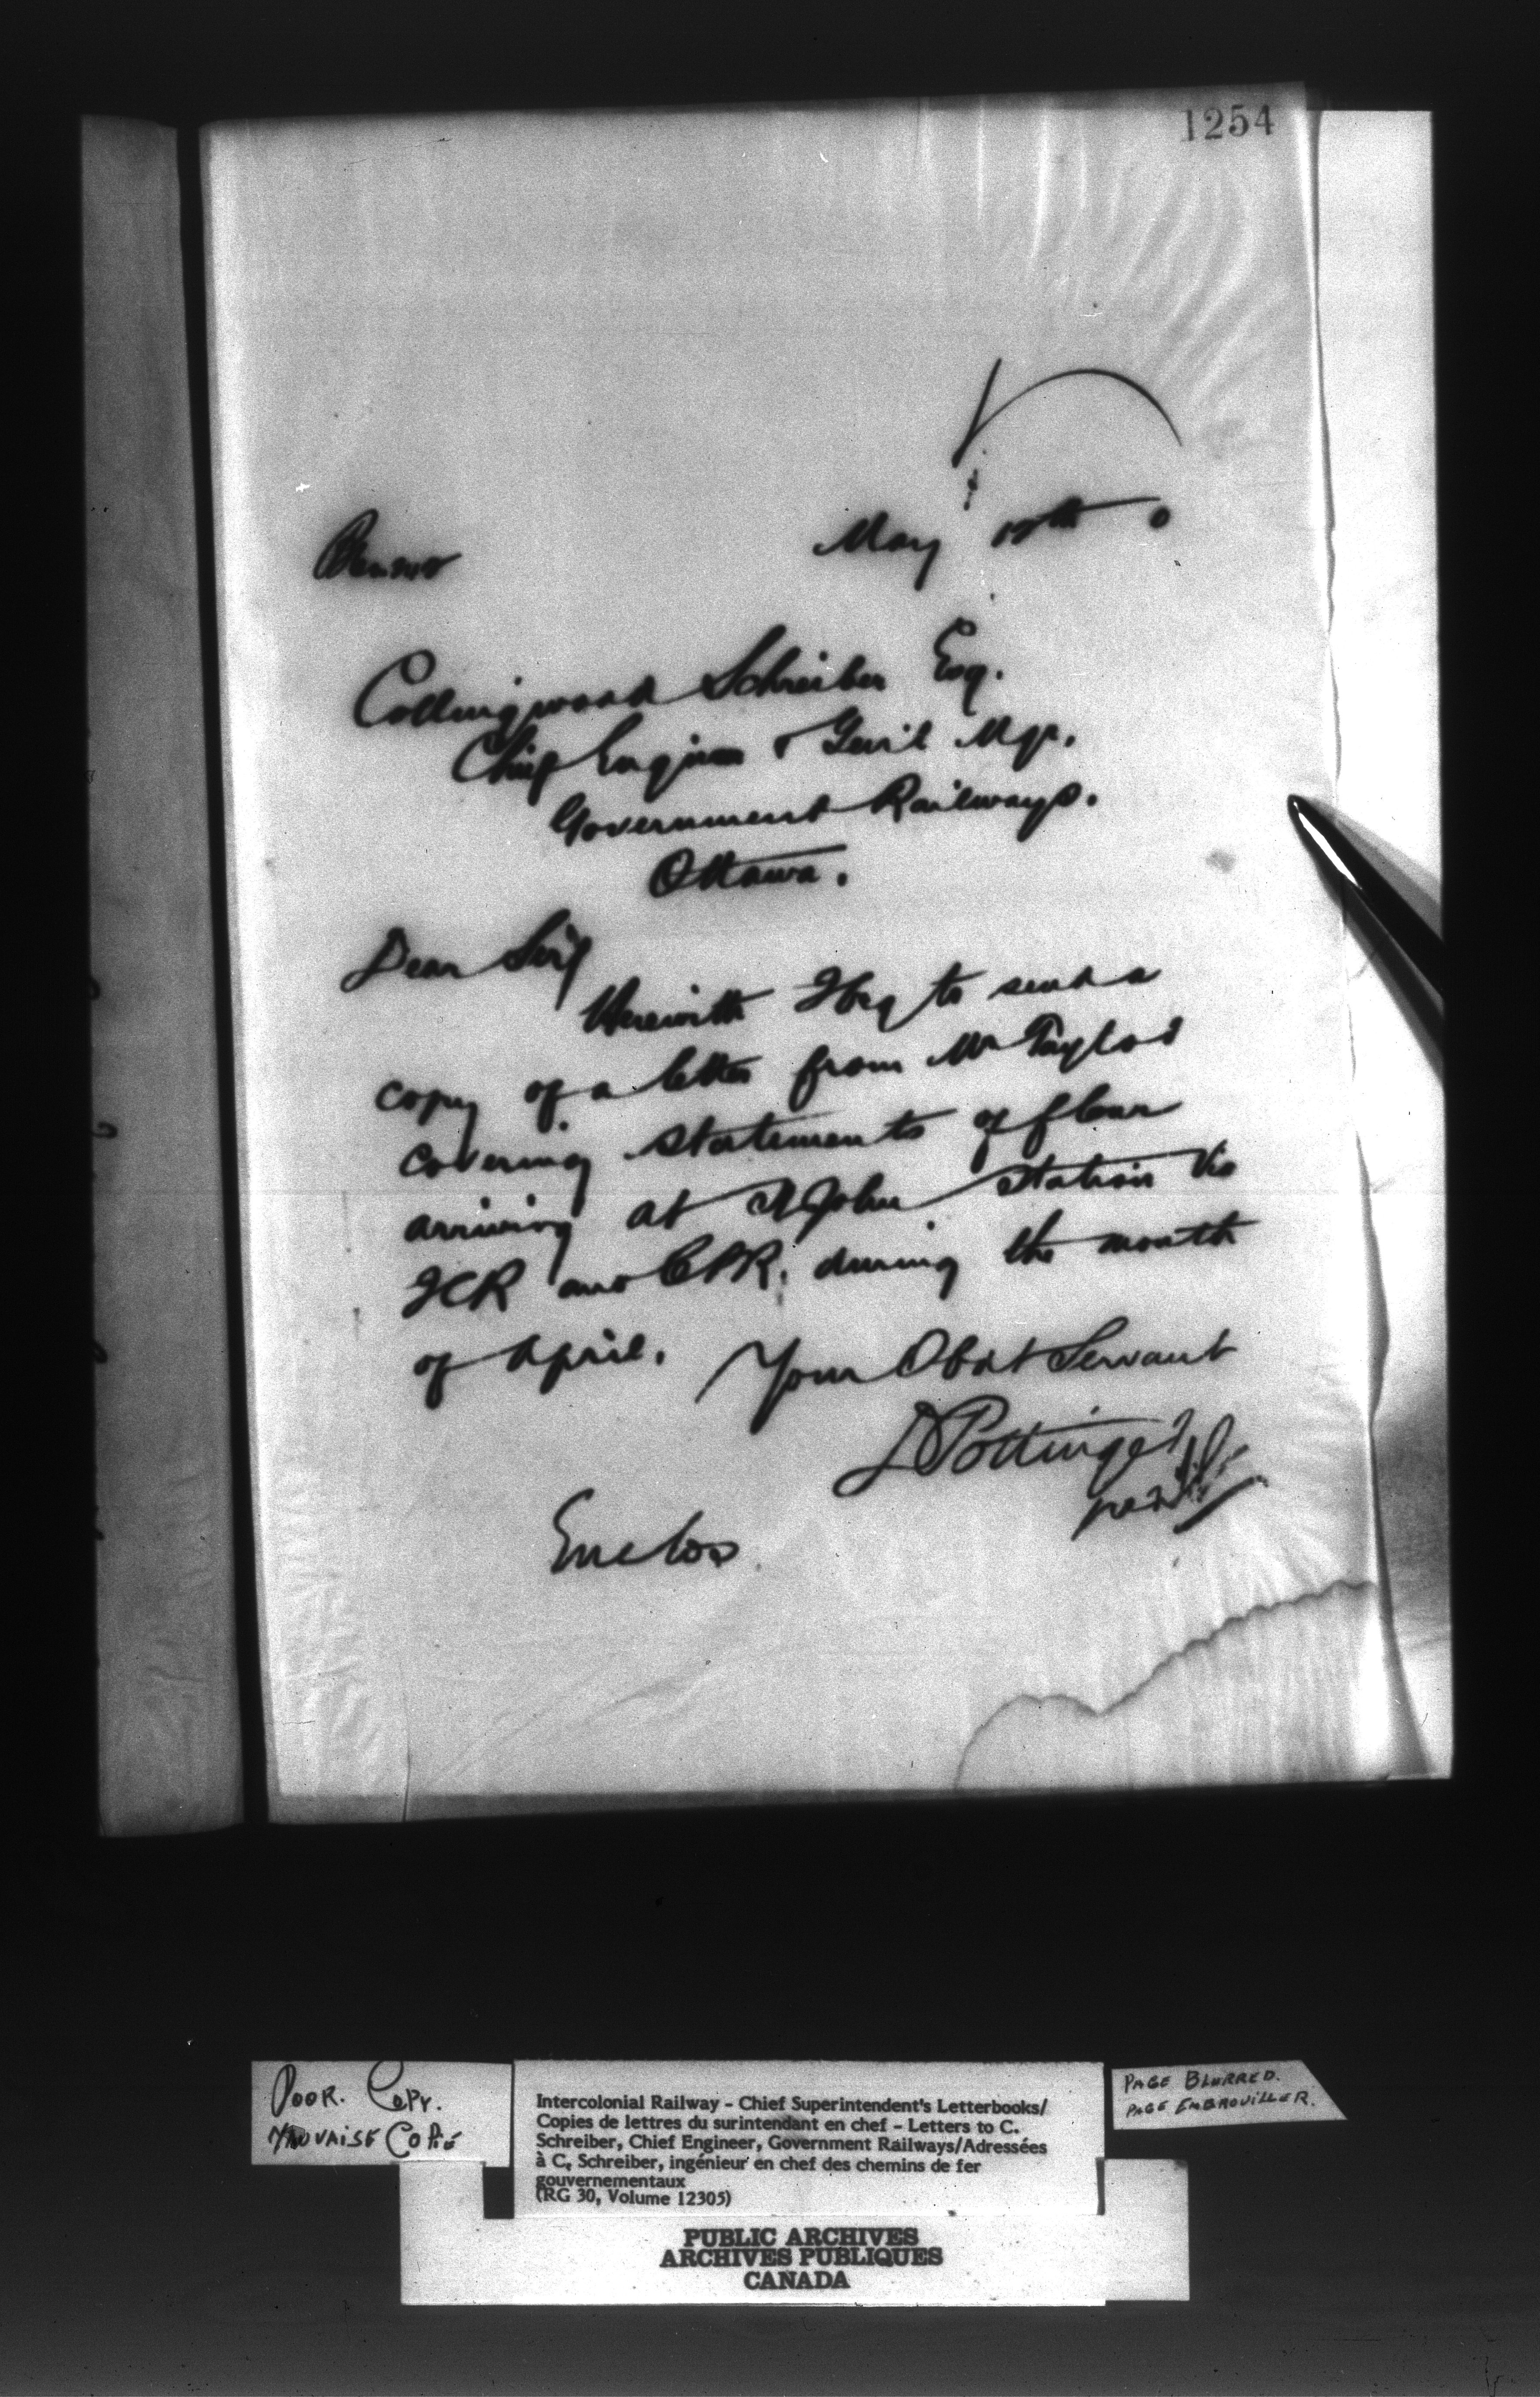 1254
May 17th 0
Collingwood Schreiber Esq.
Chief Engineer & Genl Mgr.
Government Railways.
Ottawa.
Dear Sir,
Herewith I beg to send a
copy of a letter from Mr Taylor
covering statements of flour
arriving at St John Station via
ICR and CPR. during the month
of April.
Your Obdt Servant
D Pottinger
per
Enclos
POOR. COPY.
MAUVAISE COPIE
Intercolonial Railway - Chief Superintendent's Letterbooks/
Copies de lettres du surintendant en chef - Letters to C.
Schreiber, Chief Engineer, Government Railways/Adressées
à C. Schreiber, ingénieur en chef des chemins de fer
gouvernementaux
(RG 30, Volume 12305)
PAGE BLURRED.
PAGE EMBROUILLER.
PUBLIC ARCHIVES
ARCHIVES PUBLIQUES
CANADA